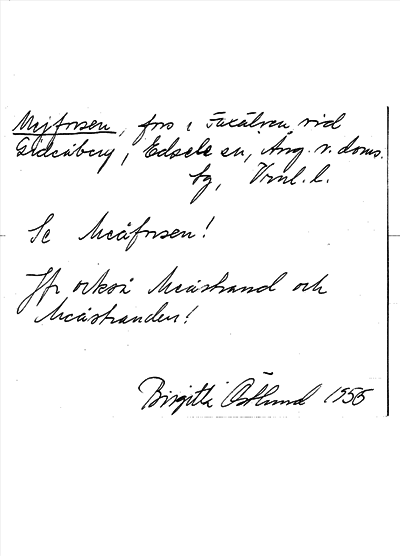 Mejforsen, fors i Faxälven vid
Gideåberg, Edsele sn, Ång. v. doms.
sg, Vrnl. l.
Se Meåforsen!
Jfr också Meåstrand och
Meåstranden!
Birgitta Östlund 1956